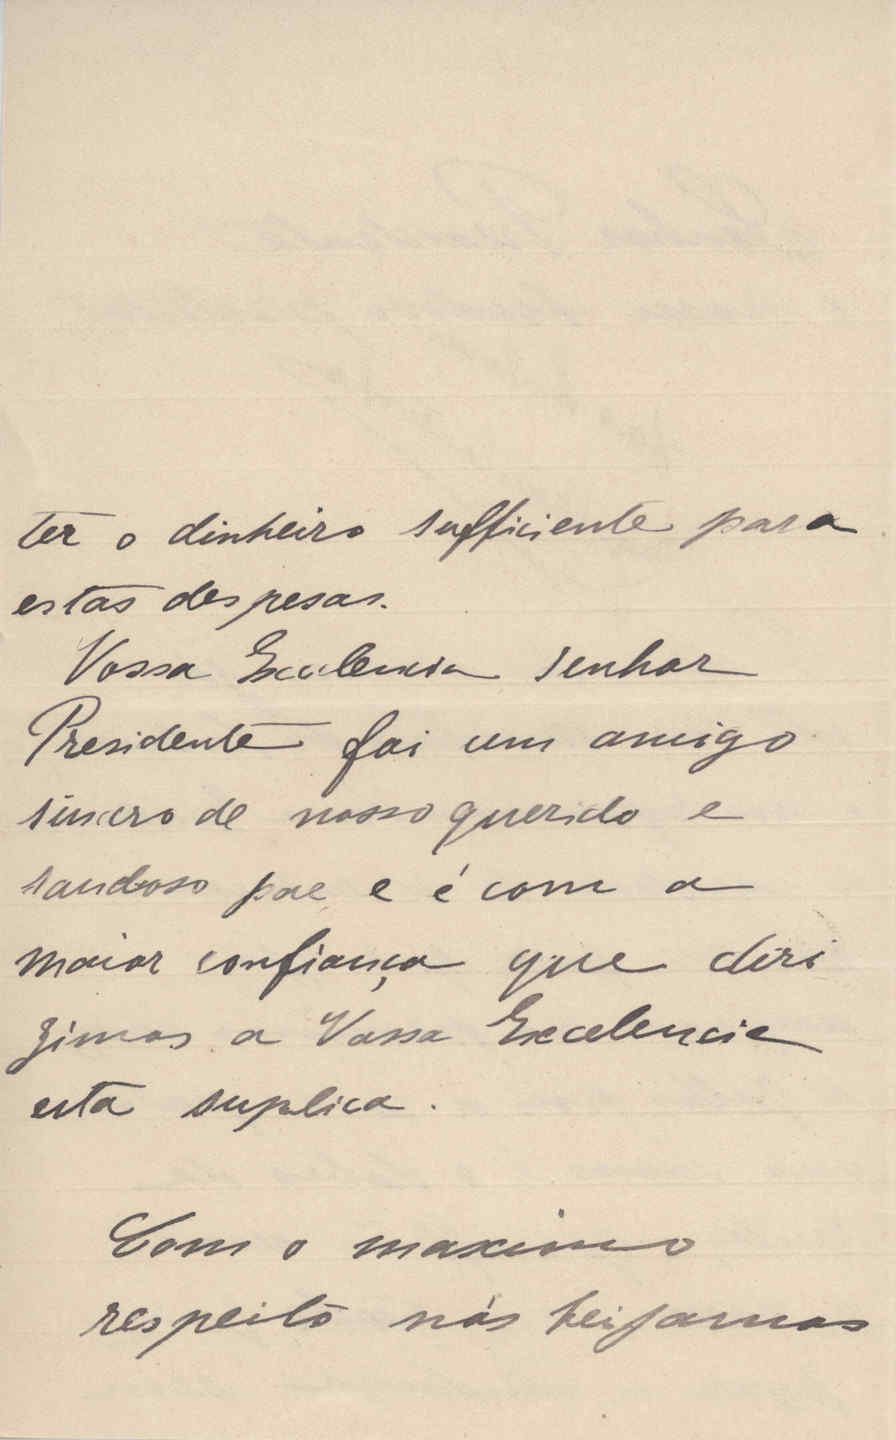 ter o dinheiro sufficiente para
estas despesas.
Vossa Excelencia Senhor
Presidente foi um amigo
sincero de nosso querido e
saudoso pae e é com a
maior confiança que diri
gimos a Vossa Excelencia
esta suplica.
Com o maximo
respeito nós beijamos